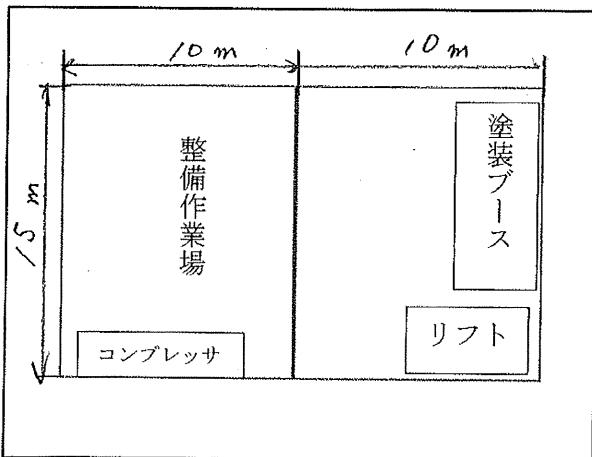 10 m
10 m
15 m
整備作業場
塗装ブース
コンプレッサ
リフト